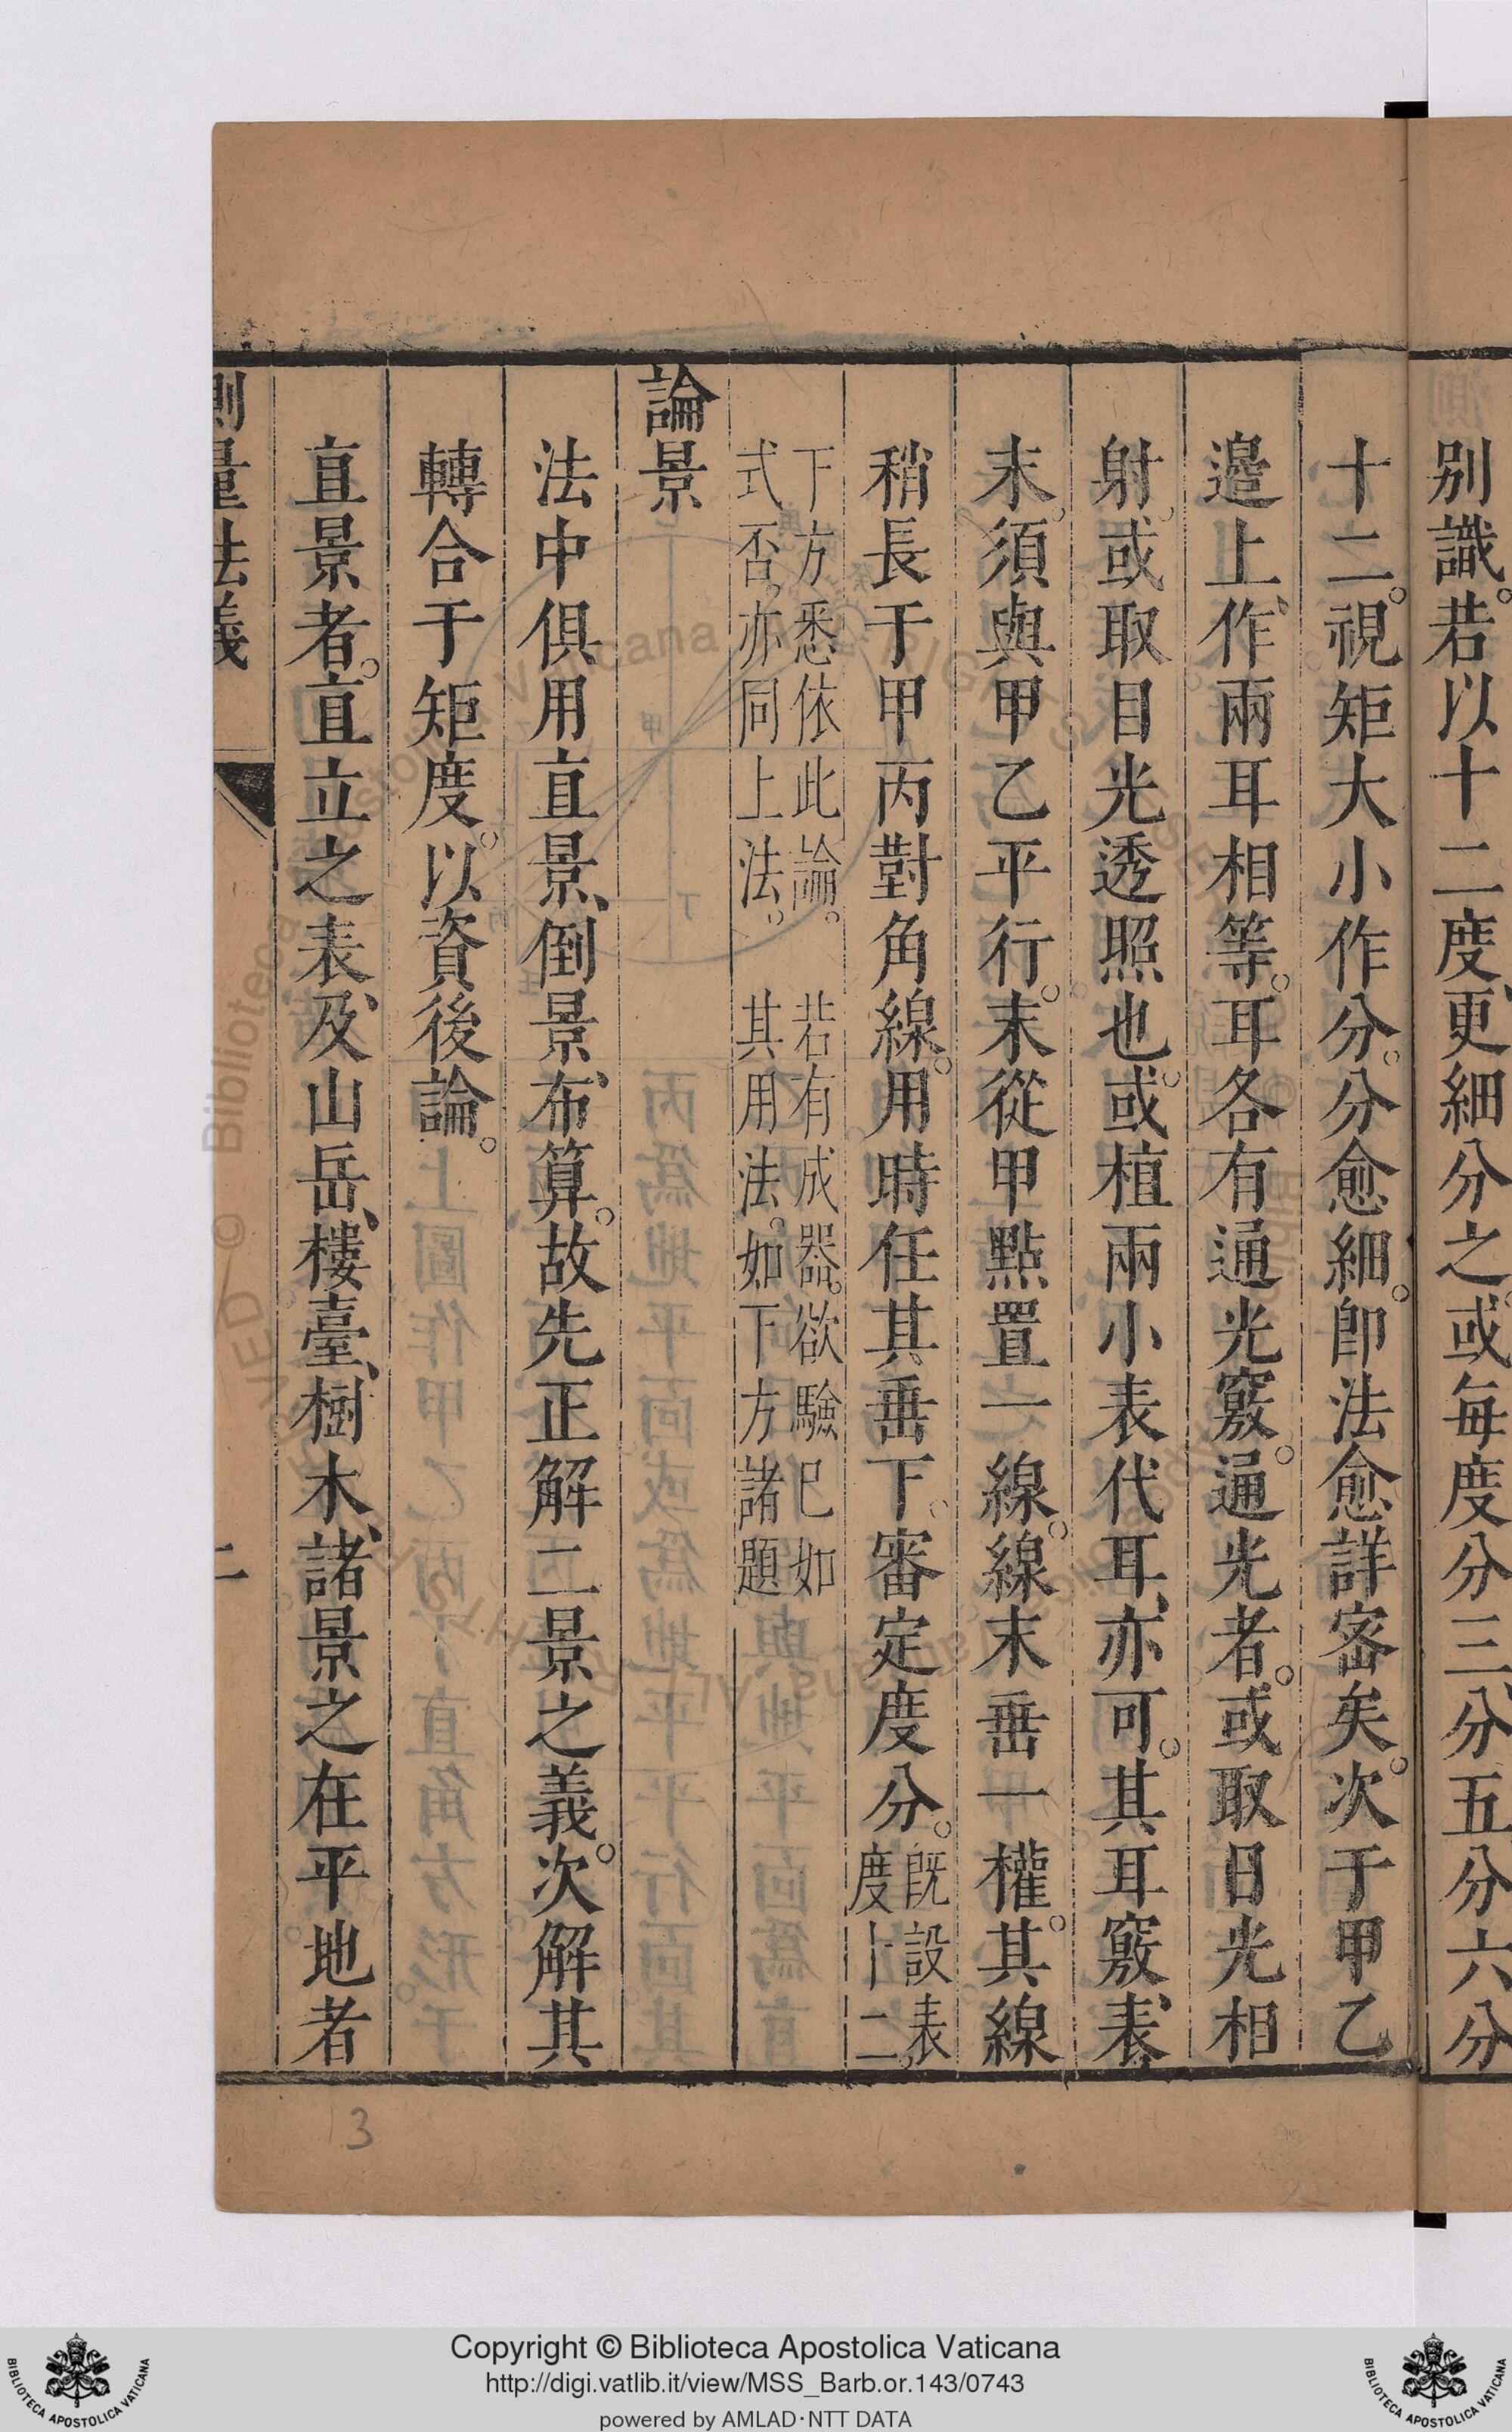 别識。若以十二度、更細分之。或每度分三分、五分、六分
十二。視矩大小作分。分愈細。卽法愈詳宻矣。次于甲乙
邉上、作兩耳相等。耳各有通光竅。通光者。或取日光相
射。或取目光透照也。或植兩小表代耳、亦可。其耳竅表、
末。須與甲乙平行。末從甲點置一線。線末垂一權。其線
稍長于甲丙對角線。用時任其垂下、審定度分。旣設表度十二。
下方悉依此論。 若有成器。欲驗已如
式否。亦同上法。 其用法。如下方諸題
論景
法中俱用直景、倒景、布算。故先正解二景之義。次解其
轉合于矩度。以資後論。
直景者。直立之表、及山岳、樓臺、樹木、諸景之在平地者
測量法義
二
3
Copyright © Biblioteca Apostolica Vaticana
http://digi.vatlib.it/view/MSS_Barb.or.143/0743
powered by AMLAD·NTT DATA
BIBLIOTECA APOSTOLICA VATICANA
BIBLIOTECA APOSTOLICA VATICANA